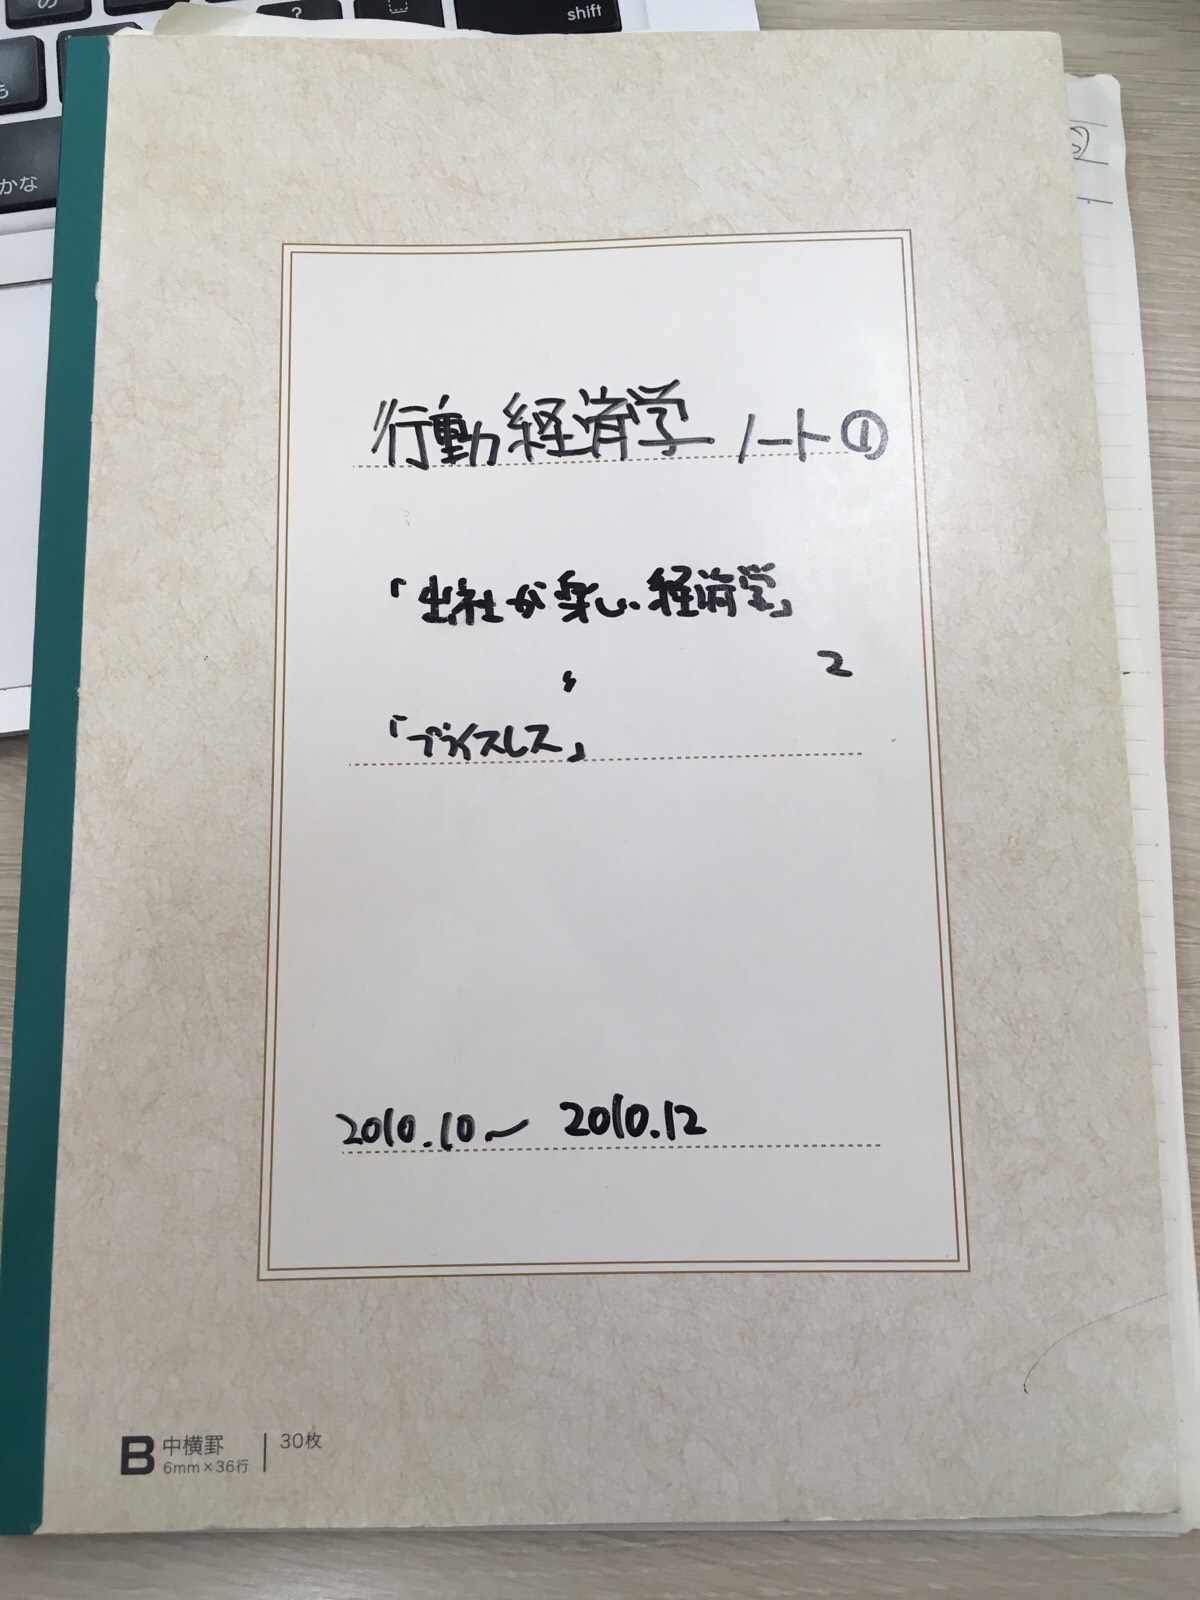 の
?
shift
も
かな
行動経済学 ノート①
「出社が楽しい経済学」
2
「プライスレス」
2010.10〜 2010.12
B 中横罫 30枚
6mm×36行